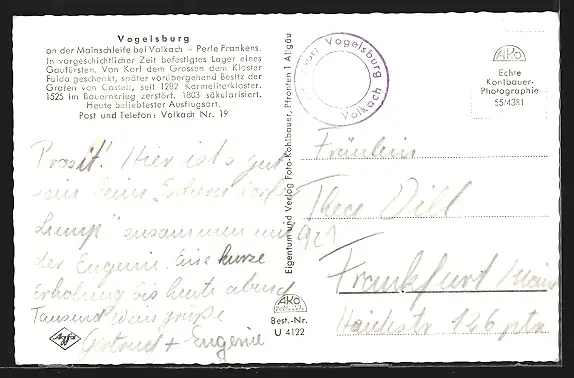 Vogelsburg
an der Mainschleife bei Volkach – Perle Frankens.
In vorgeschichtlicher Zeit befestigtes Lager eines
Gaufürsten. Von Karl dem Grossen dem Kloster
Fulda geschenkt, später vorübergehend Besitz der
Grafen von Castell, seit 1282 Karmeliterkloster.
1525 im Bauernkrieg zerstört. 1803 säkularisiert.
Heute beliebtester Ausflugsort.
Post und Telefon: Volkach Nr. 19
Prosit! Hier ist's gut
sein beim
Lump" zusammen mit
der Eugenie. Eine kurze
Erholung bis heute abend
Tausend
Gertrud + Eugenie
Agfa
Eigentum und Verlag Foto-Kohlbauer, Pfronten 1 Allgäu
AKO
Best.-Nr.
U 4122
Vogelsburg
Volkach
AKO
Echte
Kohlbauer-
Photographie
55/4381
Fräulein
Thea Dill
Frankfurt/Main
126 ptr